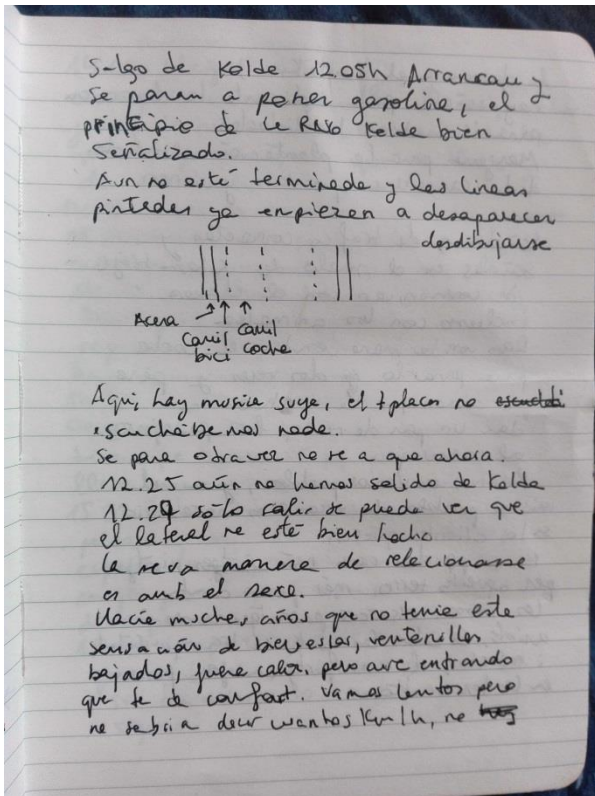 Salgo de Kolda 12.05h Arrancan y
se paran a poner gasolina, el
principio de la RN6 Kolda bien
señalizado.
Aun no está terminada y las lineas
pintadas ya empiezan a desaparecer
desdibujarse
Acera
Carril bici
Carril coche
Aqui, hay musica suya, el
escuchábamos nada.
Se para otra vez no se a que ahora.
12.25 aún no hemos salido de Kolda
12.29 sólo salir se puede ver que
el lateral no está bien hecho
La seva manera de relacionarse
es amb el sexe.
Hacía muchos años que no tenia esta
sensación de bienestar, ventanillas
bajados, fuera calor, pero aire entrando
que te da confort. Vamos lentos pero
no sabria decir cuantos Km/h, no